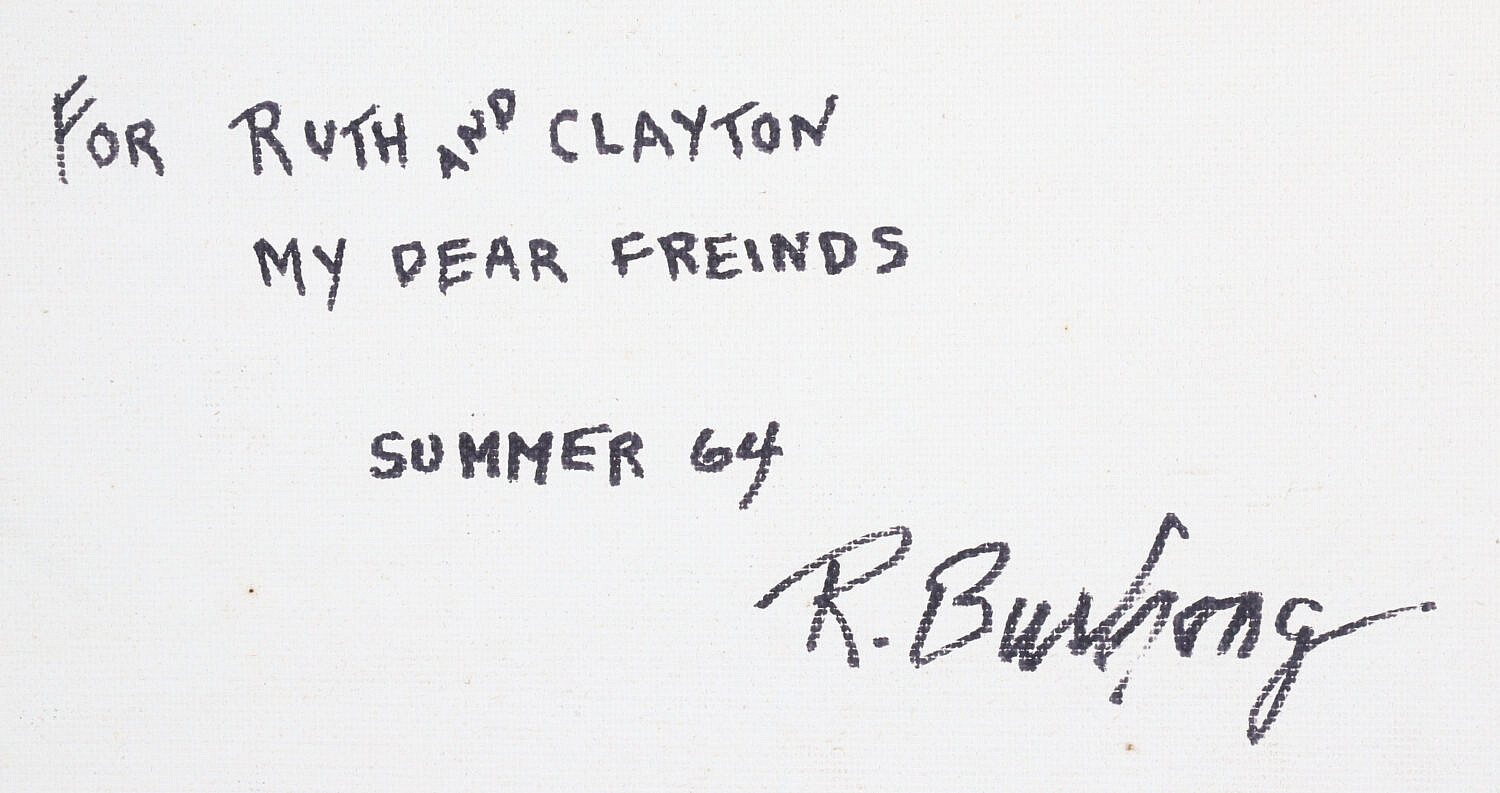 FOR RUTH AND CLAYTON
MY DEAR FREINDS
SUMMER 64
R. Bushong